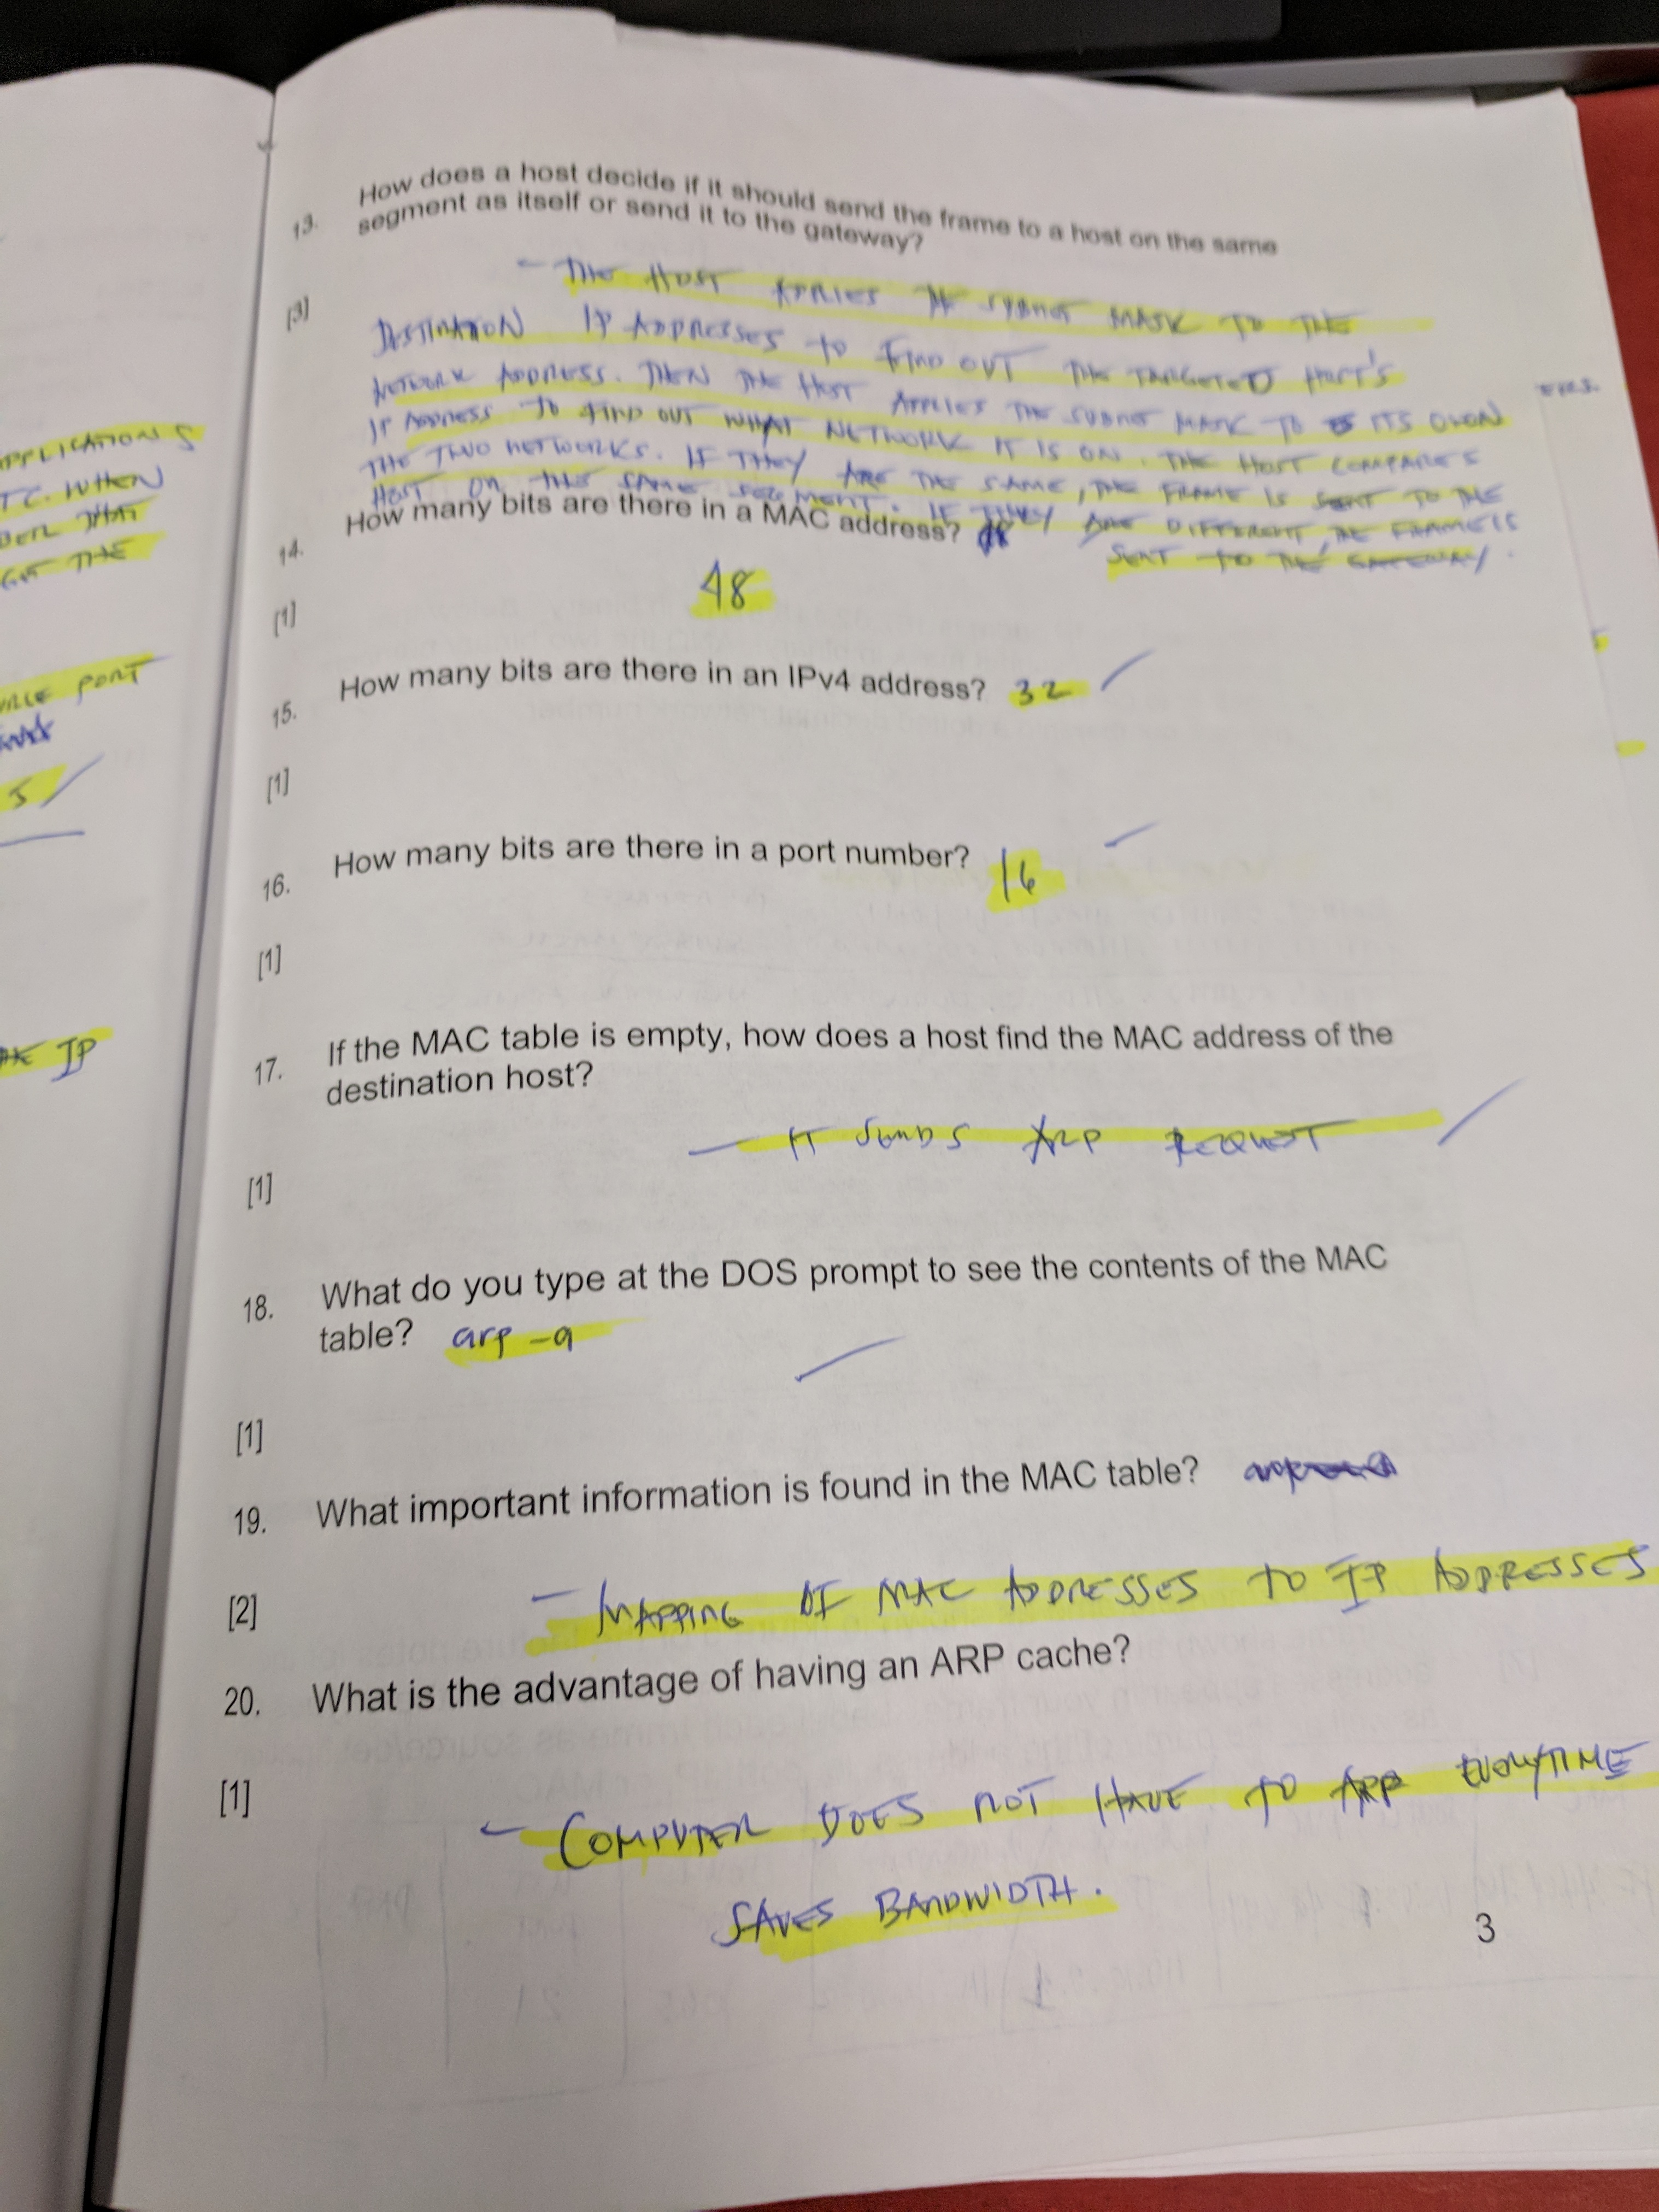 13. How does a host decide if it should send the frame to a host on the same
segment as itself or send it to the gateway?
[3]
- THE HOST APPLIES THE SUBNET MASK TO THE
DESTINATION IP ADDRESSES TO FIND OUT THE TARGETED HOST'S
NETWORK ADDRESS. THEN THE HOST APPLIES THE SUBNET MASK TO ITS OWN
IP ADDRESS TO FIND OUT WHAT NETWORK IT IS ON. THE HOST COMPARES
THE TWO NETWORKS. IF THEY ARE THE SAME, THE FRAME IS SENT TO THE
HOST ON THE SAME SEGMENT. IF THEY ARE DIFFERENT, THE FRAME IS
SENT TO THE GATEWAY.
14. How many bits are there in a MAC address?
48
[1]
15. How many bits are there in an IPv4 address? 32
[1]
16. How many bits are there in a port number? 16
[1]
17. If the MAC table is empty, how does a host find the MAC address of the
destination host?
- IT SENDS ARP REQUEST
[1]
18. What do you type at the DOS prompt to see the contents of the MAC
table? arp -a
[1]
19. What important information is found in the MAC table?
[2] - MAPPING OF MAC ADDRESSES TO IP ADDRESSES
20. What is the advantage of having an ARP cache?
[1] - COMPUTER DOES NOT HAVE TO ARP EVERYTIME
SAVES BANDWIDTH.
3
APPLICATIONS
WHEN
THAT
GET THE
PORT
5
IP